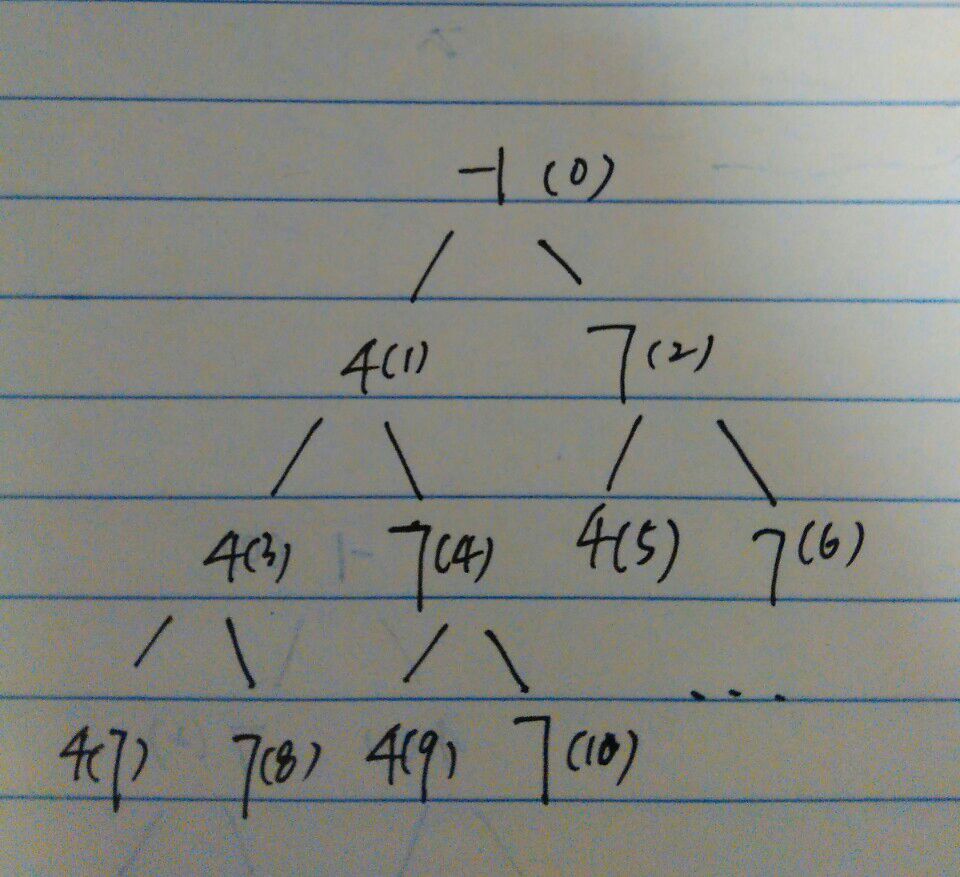 -1 (0)
4(1) 7(2)
4(3) 7(4) 4(5) 7(6)
4(7) 7(8) 4(9) 7(10) ...